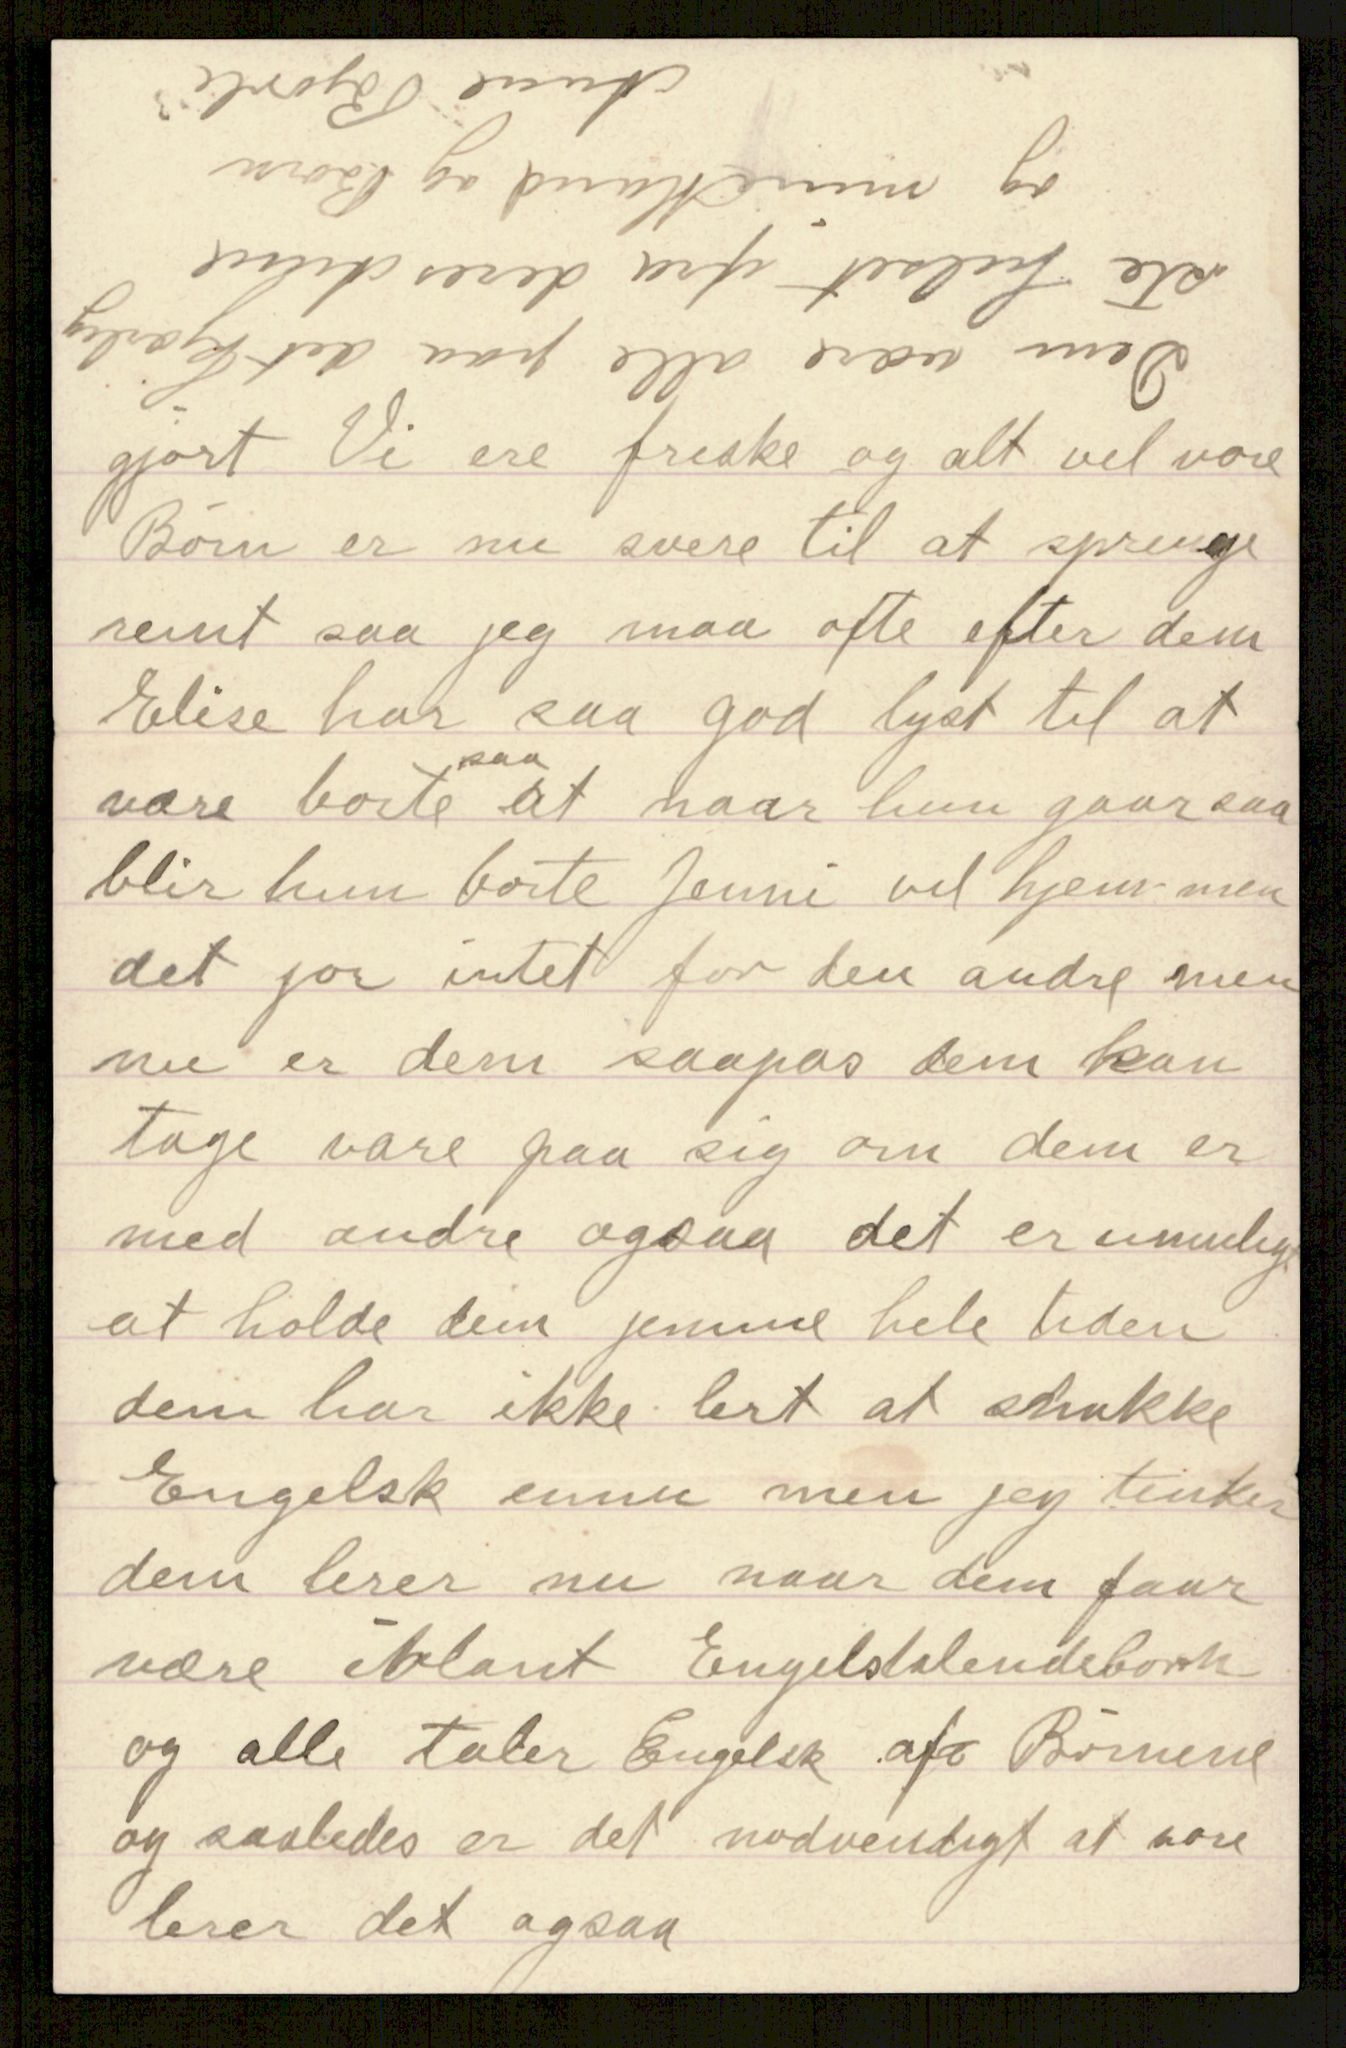 gjort Vi ere friske og alt vel vore
Börn er nu svere til at sprenge
remt saa jeg maa ofte efter dem
Elise har saa god lyst til at
vare borte saa at naar hun gaar saa
blir hun borte Jenni vel hjem men
det jor intet for den andre men
nu er dem saapas dem kan
tage vare paa sig om dem er
med andre ogsaa det er umuligt
at holde dem jemme hele tiden
dem har ikke lert at snakke
Engelsk ennu men jeg tenker
dem lerer nu naar dem faar
være iblant Engelstalendeborn
og alle taler Engelsk af Börnene
og saaledes er det nodvendigt at vore
lerer det ogsaa
Dem være alle paa det kjærlig
ste helset fra deres Anne
og mine Mand og Born
Anne Bjorli